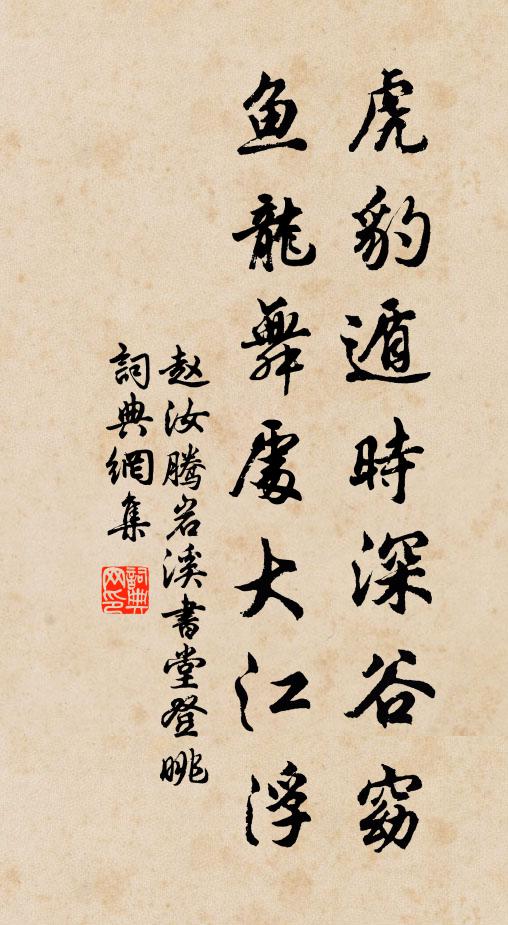 虎豹遁時深谷窈
鱼龍舞處大江浮
赵汝腾岩溪書堂登眺
詞典網集
詞典网印